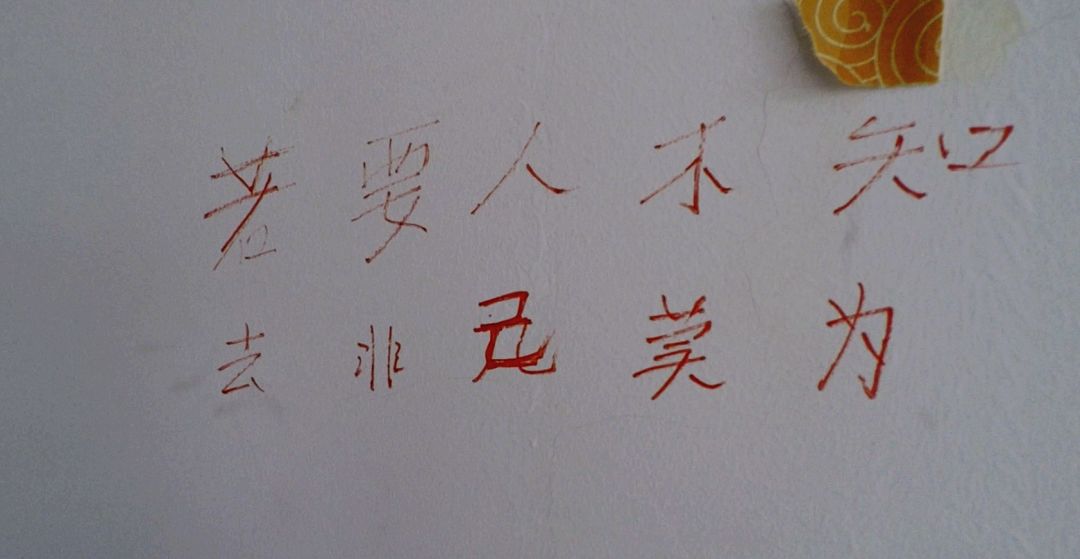 若要人不知
去非己莫为